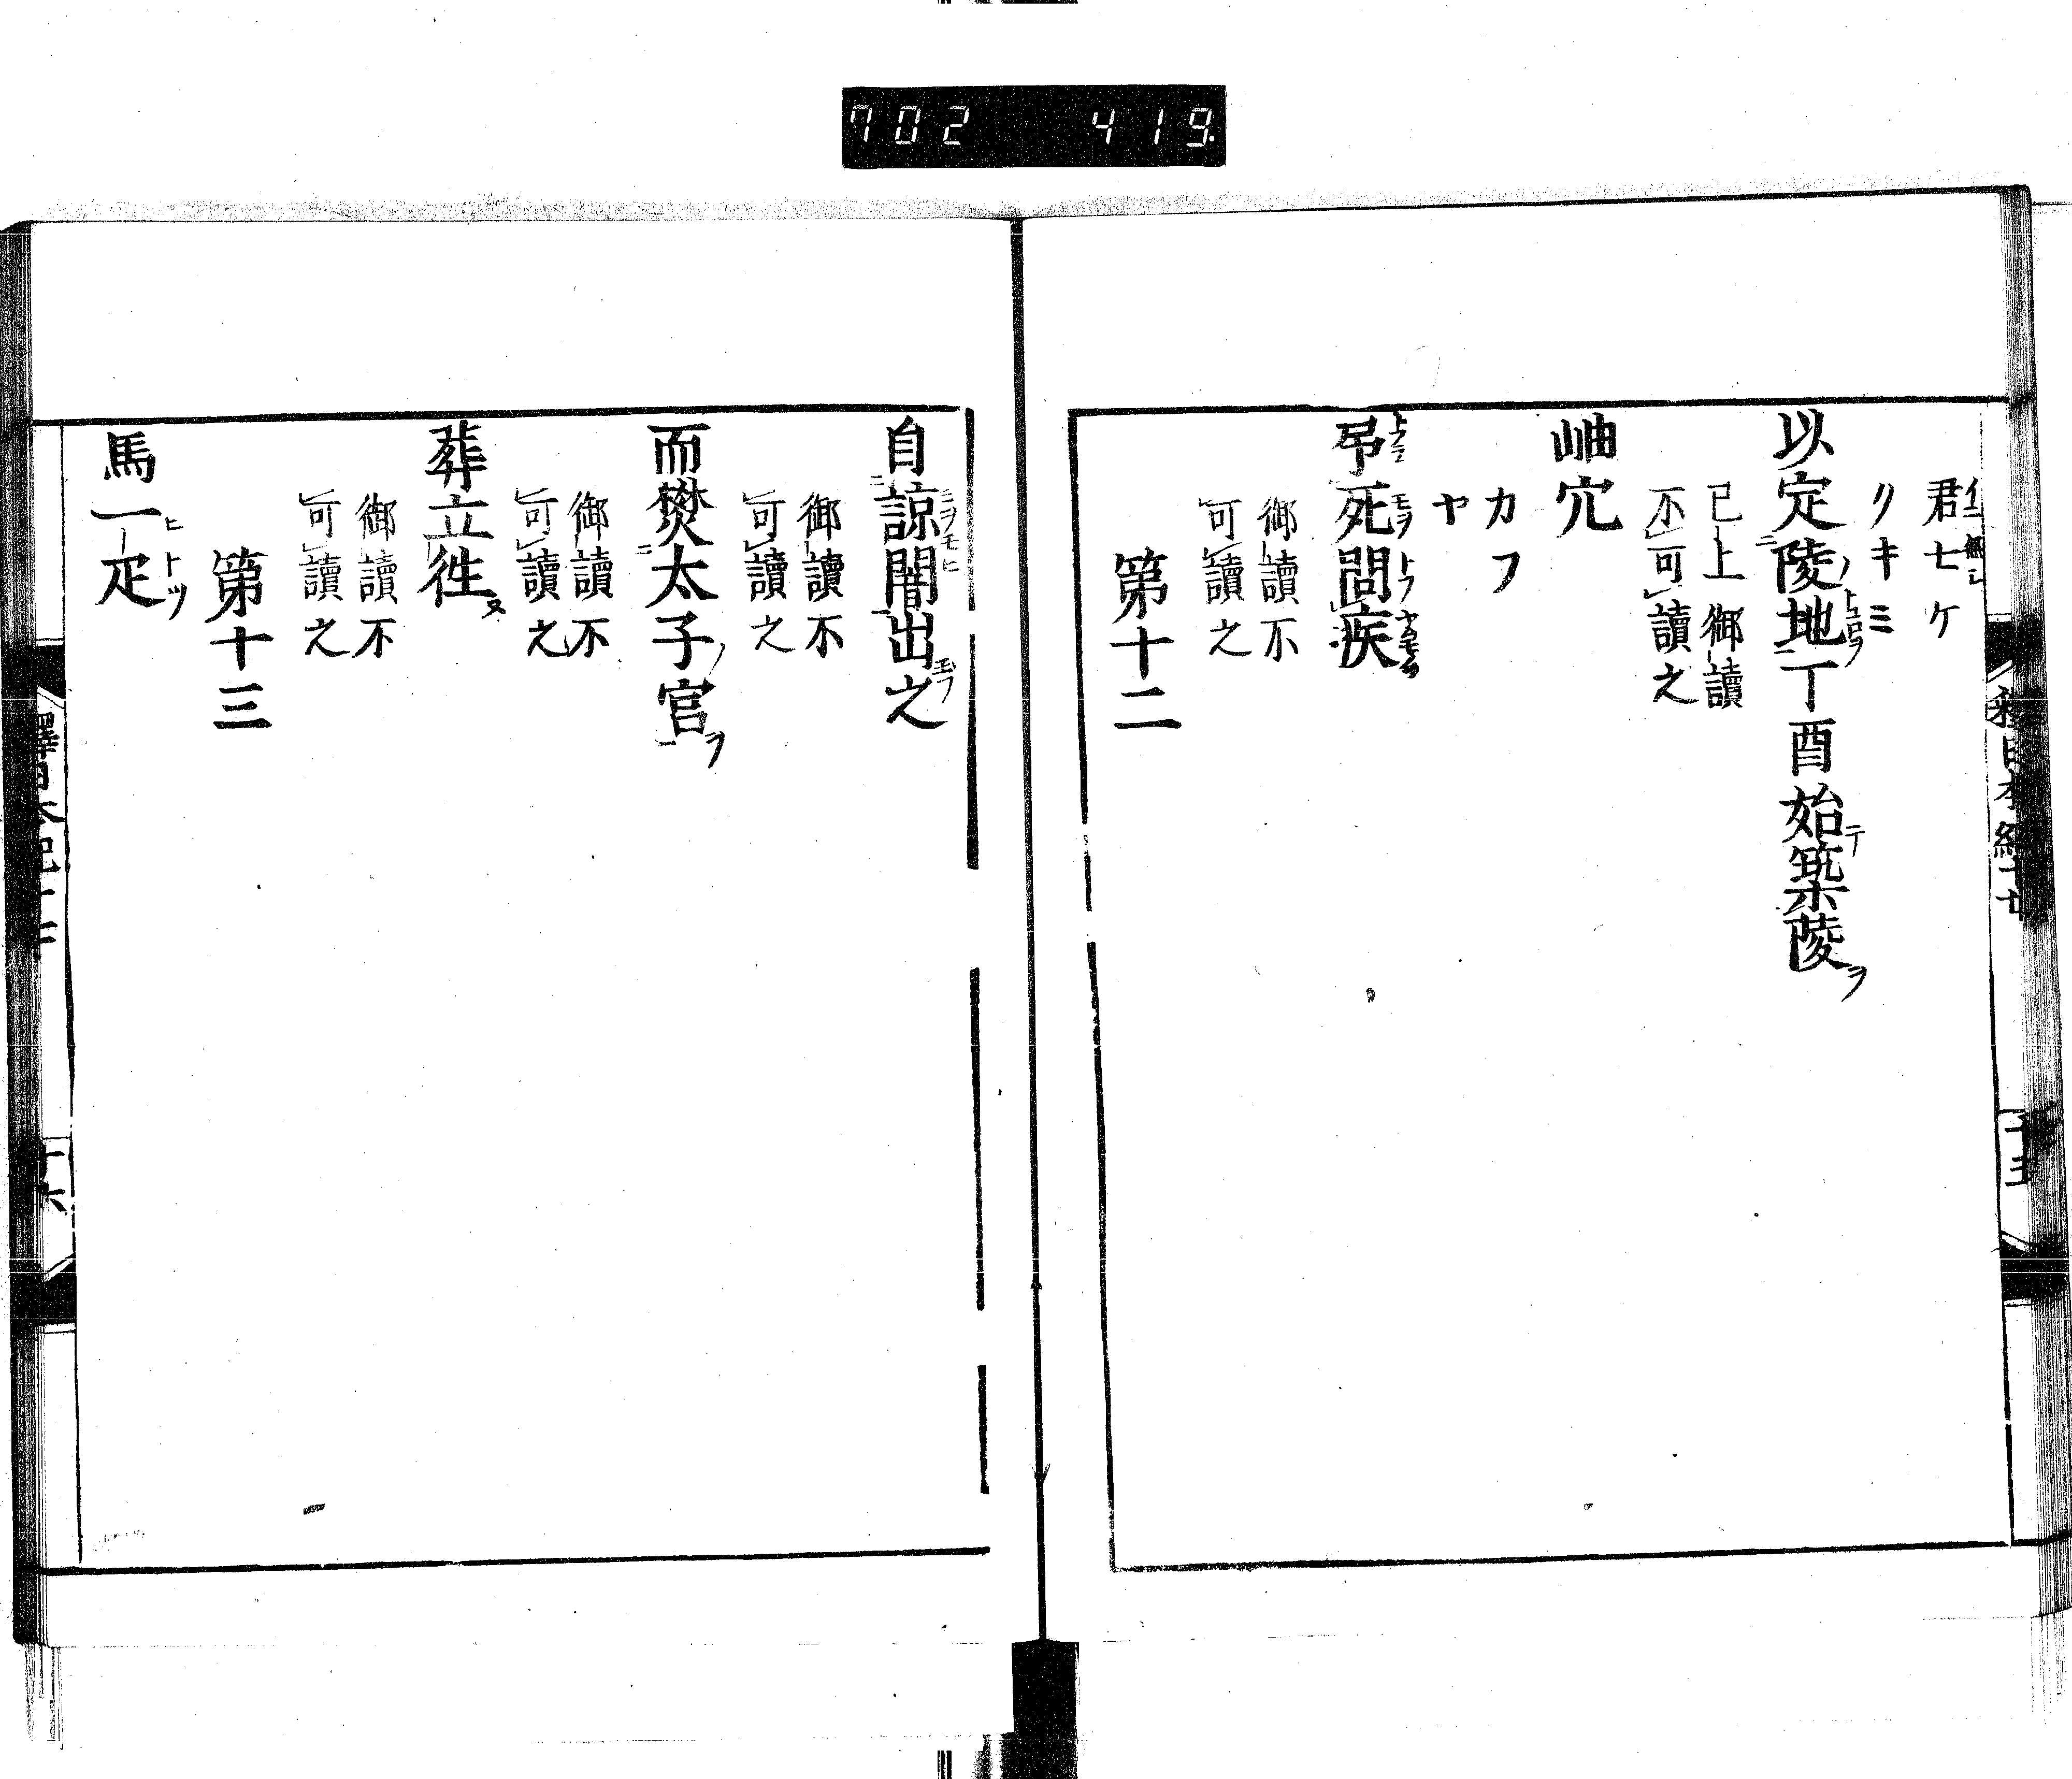 702 419
君七ケ
リキミ
以定陵地丁酉始築陵ヲ
已上御讀
不可讀之
岫穴
カフ
ヤ
弔死問疾
御讀不
可讀之
第十二
自諒闇出之
御讀不
可讀之
而焚太子宮ヲ
御讀不
可讀之
葬立往
御讀不
可讀之
第十三
馬一疋
ヒトツ